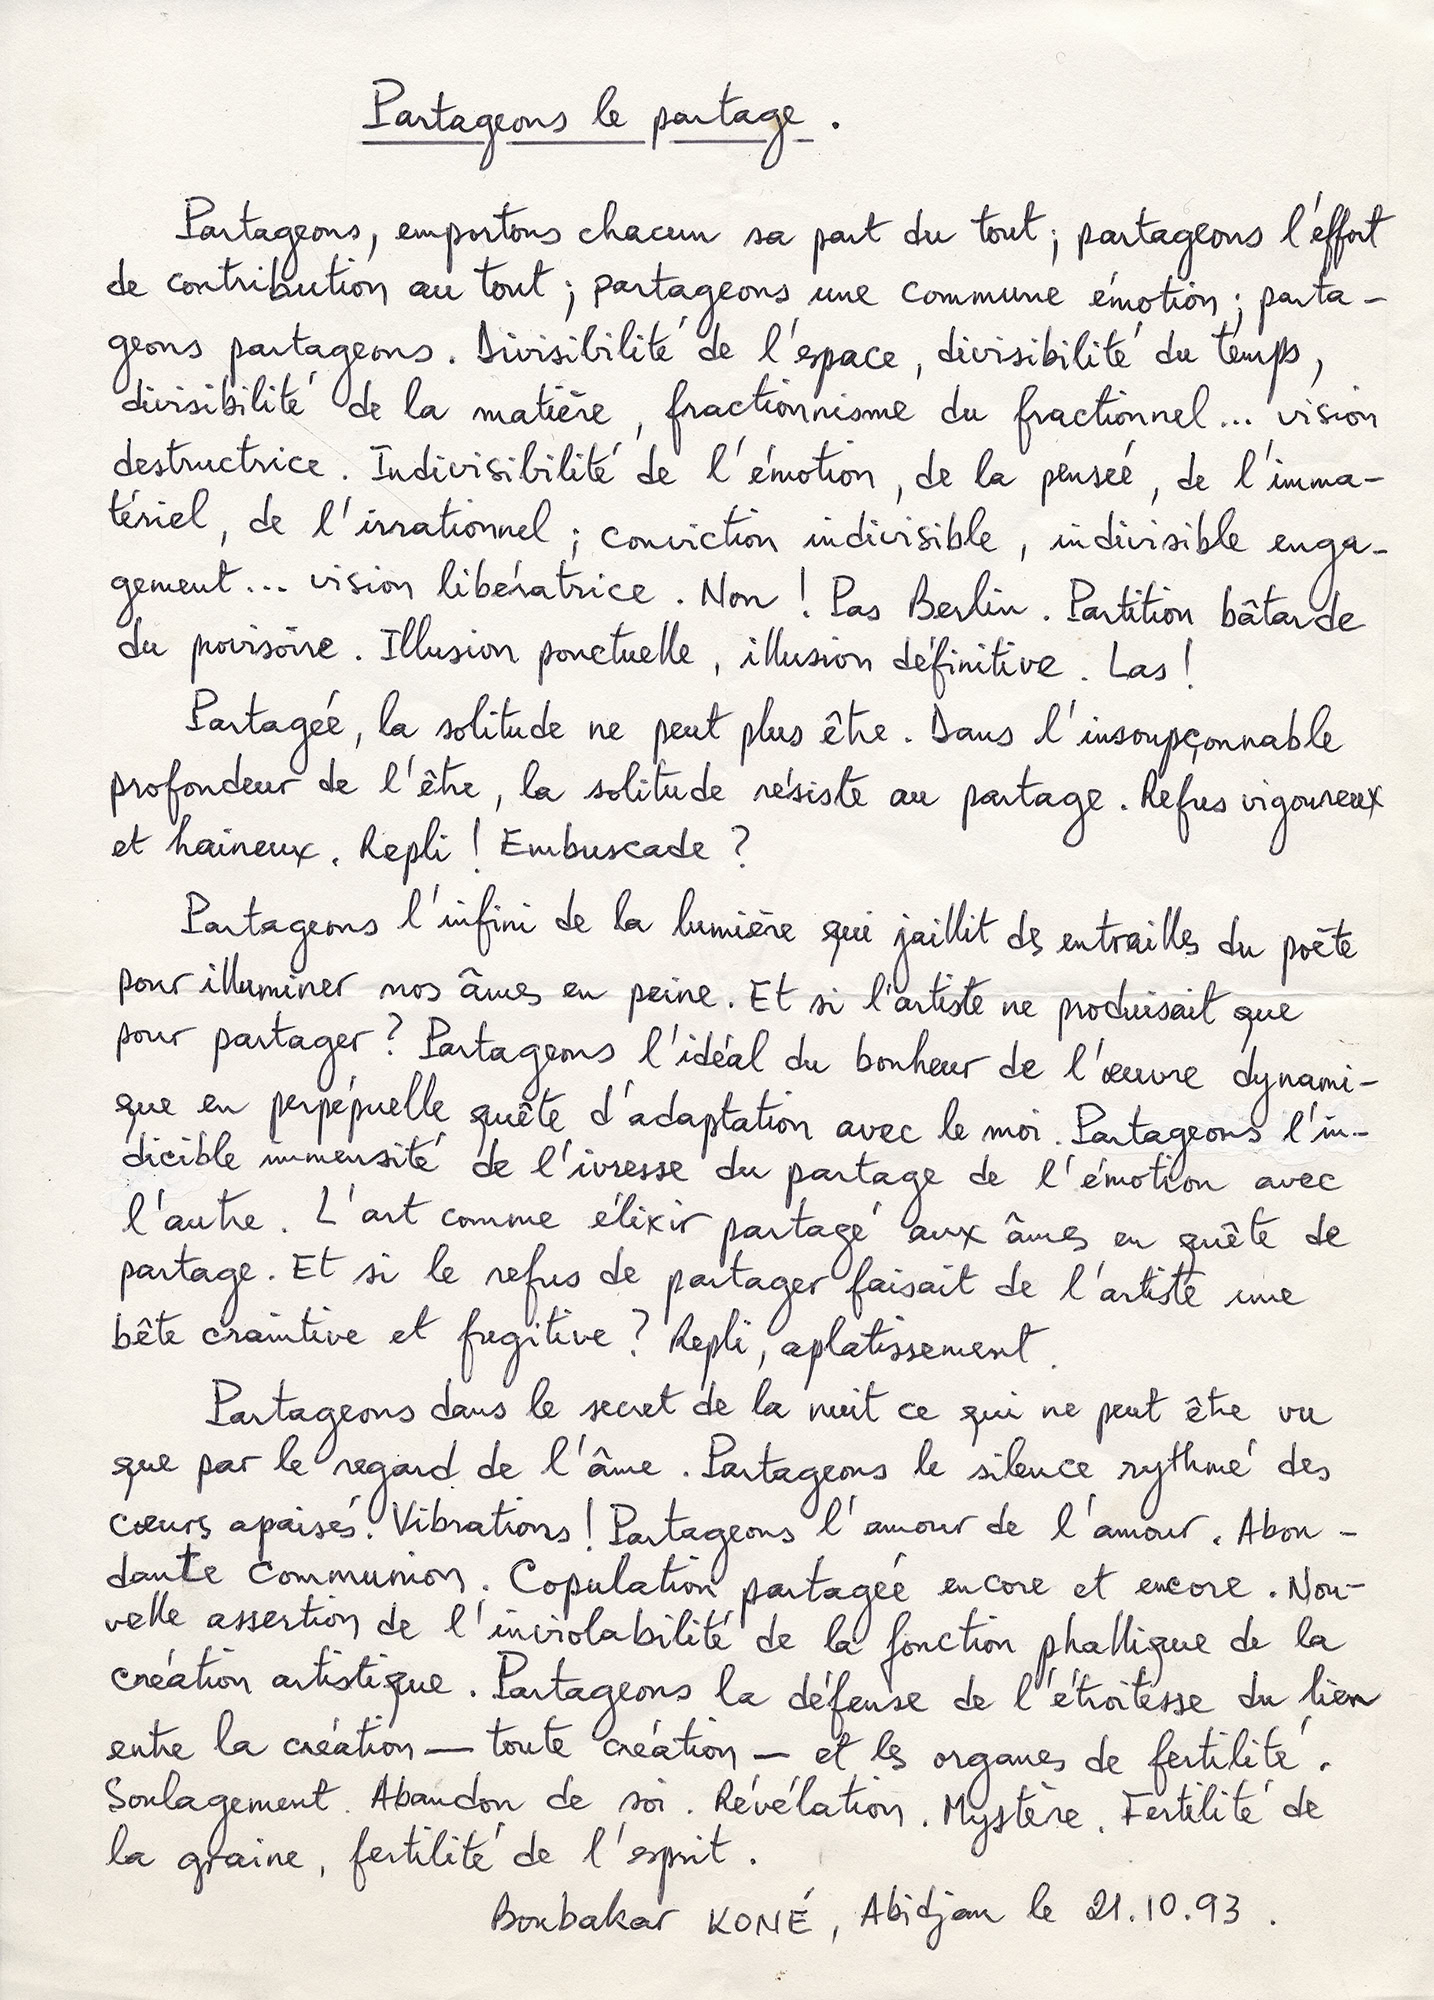 Partageons le partage.
Partageons, emportons chacun sa part du tout ; partageons l'éffort
de contribution au tout ; partageons une commune émotion ; parta-
geons partageons. Divisibilité de l'espace, divisibilité du temps,
divisibilité de la matière, fractionnisme du fractionnel... vision
destructrice. Indivisibilité de l'émotion, de la pensée, de l'imma-
tériel, de l'irrationnel ; conviction indivisible, indivisible enga-
gement... vision libératrice. Non ! Pas Berlin. Partition bâtarde
du provisoire. Illusion ponctuelle, illusion définitive. Las !
Partagée, la solitude ne peut plus être. Dans l'insoupçonnable
profondeur de l'être, la solitude résiste au partage. Refus vigoureux
et haineux. Repli ! Embuscade ?
Partageons l'infini de la lumière qui jaillit des entrailles du poète
pour illuminer nos âmes en peine. Et si l'artiste ne produisait que
pour partager ? Partageons l'idéal du bonheur de l'œuvre dynami-
que en perpépuelle quête d'adaptation avec le moi. Partageons l'in-
dicible immensité de l'ivresse du partage de l'émotion avec
l'autre. L'art comme élixir partagé aux âmes en quête de
partage. Et si le refus de partager faisait de l'artiste une
bête craintive et fugitive ? Repli, aplatissement.
Partageons dans le secret de la nuit ce qui ne peut être vu
que par le regard de l'âme. Partageons le silence rythmé des
cœurs apaisés. Vibrations ! Partageons l'amour de l'amour. Abon-
dante communion. Copulation partagée encore et encore. Nou-
velle assertion de l'inviolabilité de la fonction phallique de la
création artistique. Partageons la défense de l'étroitesse du lien
entre la création — toute création — et les organes de fertilité.
Soulagement. Abandon de soi. Révélation. Mystère. Fertilité de
la graine, fertilité de l'esprit.
Boubakar KONÉ, Abidjan le 21.10.93.